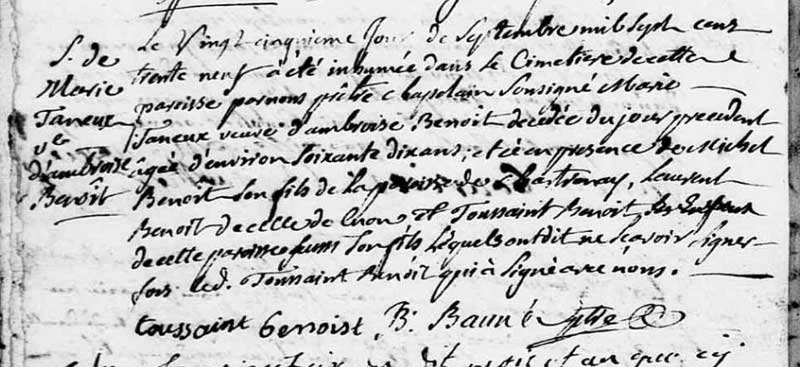 S. de
Marie
Taneux
ve
d'ambroise
Benoit
Le Vingt cinquieme Jour de Septembre mil Sept cens
trente neuf à été inhumée dans le Cimetiere de cette
paroisse par nous prêtre chapelain Sousigné Marie
Taneux veuve d'ambroise Benoit decédée du jour precedent
âgée d'environ Soixante dix ans, et ce en presence de Michel
Benoit Son fils de la paroisse de Chartrenay, Laurent
Benoit de celle de Cuon et Toussaint Benoit
de cette paroisse Son fils Lequels ont dit ne Scavoir Signer
fors led. Toussaint Benoit qui à Signé avec nous.
toussaint benoist B. Bauné ptre